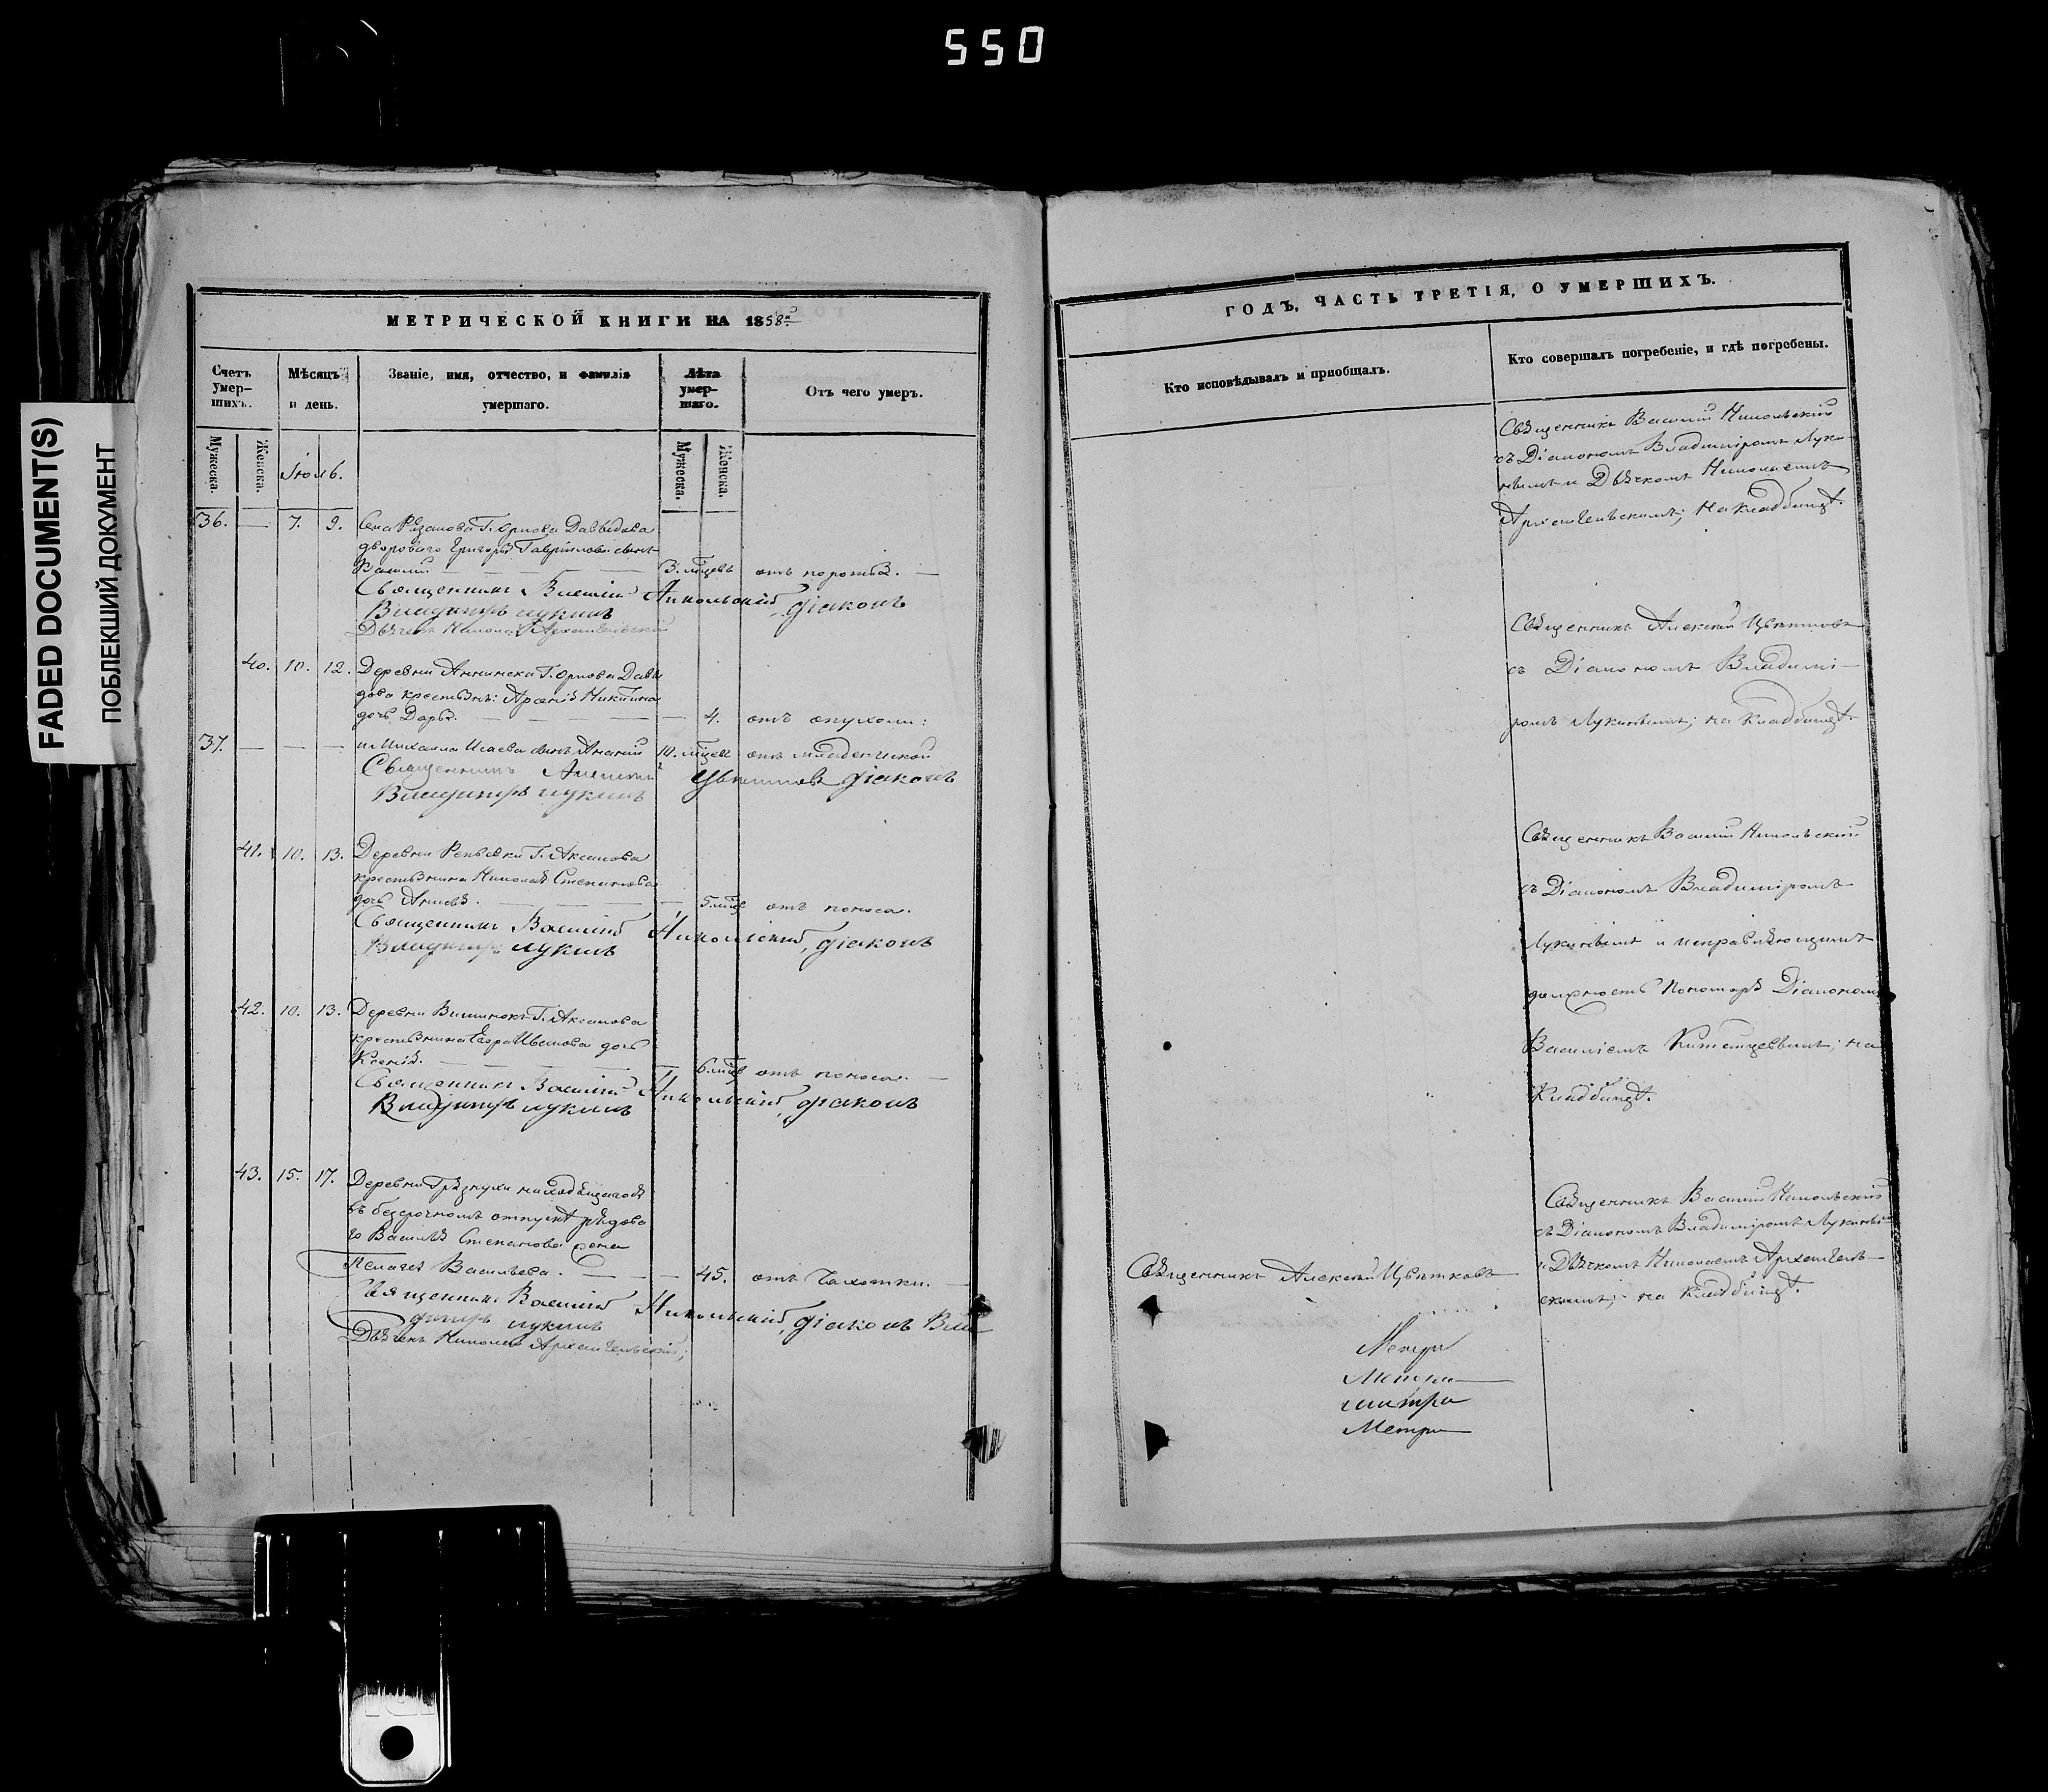 550
FADED DOCUMENT(S)
ПОБЛЕКШИЙ ДОКУМЕНТ
МЕТРИЧЕСКОЙ КНИГИ НА 1858й
Счетъ умер-шихъ.
Мѣсяцъ и день.
Званіе, имя, отчество, и фамилія умершаго.
Лѣта умер-шаго.
Отъ чего умеръ.
Мужеска.
Женска.
Іюль.
Мужеска.
Женска.
36. — 7. 9. Села Рязанова Г. Орлова Давыдова
двороваго Григорья Гаврилова сынъ
Василій — 3. мѣсцевъ отъ поноса. —
Священникъ Василій Никольскій, діаконъ
Владиміръ Лукинъ
Дьячекъ Николай Архангельскій
40. 10. 12. Деревни Аннинска Г. Орлова Давы
дова крестьянъ: Арсенія Никитина
дочь Дарья. — — — — 4. отъ опухоли:
37. — — — и Михаила Исаева сынъ Ананій 10. мѣсцев отъ младенческой
Священникъ Алексій Цвѣтковъ діаконъ
Владиміръ Лукинъ
41. 10. 13. Деревни Репьевки Г. Аксакова
крестьянина Николая Степанова
дочь — — — 5 мѣсце отъ поноса.
Священникъ Василій Никольскій, діаконъ
Владиміръ Лукинъ
42. 10. 13. Деревни Вишенокъ Г. Аксакова
крестьянина Егора Иванова дочь
Ксенія. — — 6 мѣсце отъ поноса. —
Священникъ Василій Никольскій, діаконъ
Владиміръ Лукинъ
43. 15. 17. Деревни Грязнухи находящагося
въ безсрочномъ отпускѣ рядова
го Василья Степанова жена
Пелагея Васильева. — — — 45. отъ чахотки. —
Священникъ Василій Никольскій, діаконъ Вла
диміръ Лукинъ
Дьячекъ Николай Архангельскій;
ГОДЪ, ЧАСТЬ ТРЕТІЯ, О УМЕРШИХЪ.
Кто исповѣдывалъ и пріобщалъ.
Кто совершалъ погребеніе, и гдѣ погребены.
Священникъ Василій Никольскій
съ Діакономъ Владиміромъ Луки
нымъ и Дьячкомъ Николаемъ
Архангельскимъ; на кладбищѣ.
Священникъ Алексѣй Цвѣтковъ
съ Діакономъ Владимі-
ромъ Лукинымъ; на кладбищѣ.
Священникъ Василій Никольскій
съ Діакономъ Владиміромъ
Лукинымъ и исправляющимъ
должность Пономаря Діакономъ
Василіемъ на
Кладбищѣ.
Священникъ Василій Никольскій
съ Діакономъ Владиміромъ Лукинымъ
Священникъ Алексѣй Цвѣтковъ
и Дьячкомъ Николаемъ Архангель-
скимъ; на кладбищѣ.
Метри
Метри
Метри